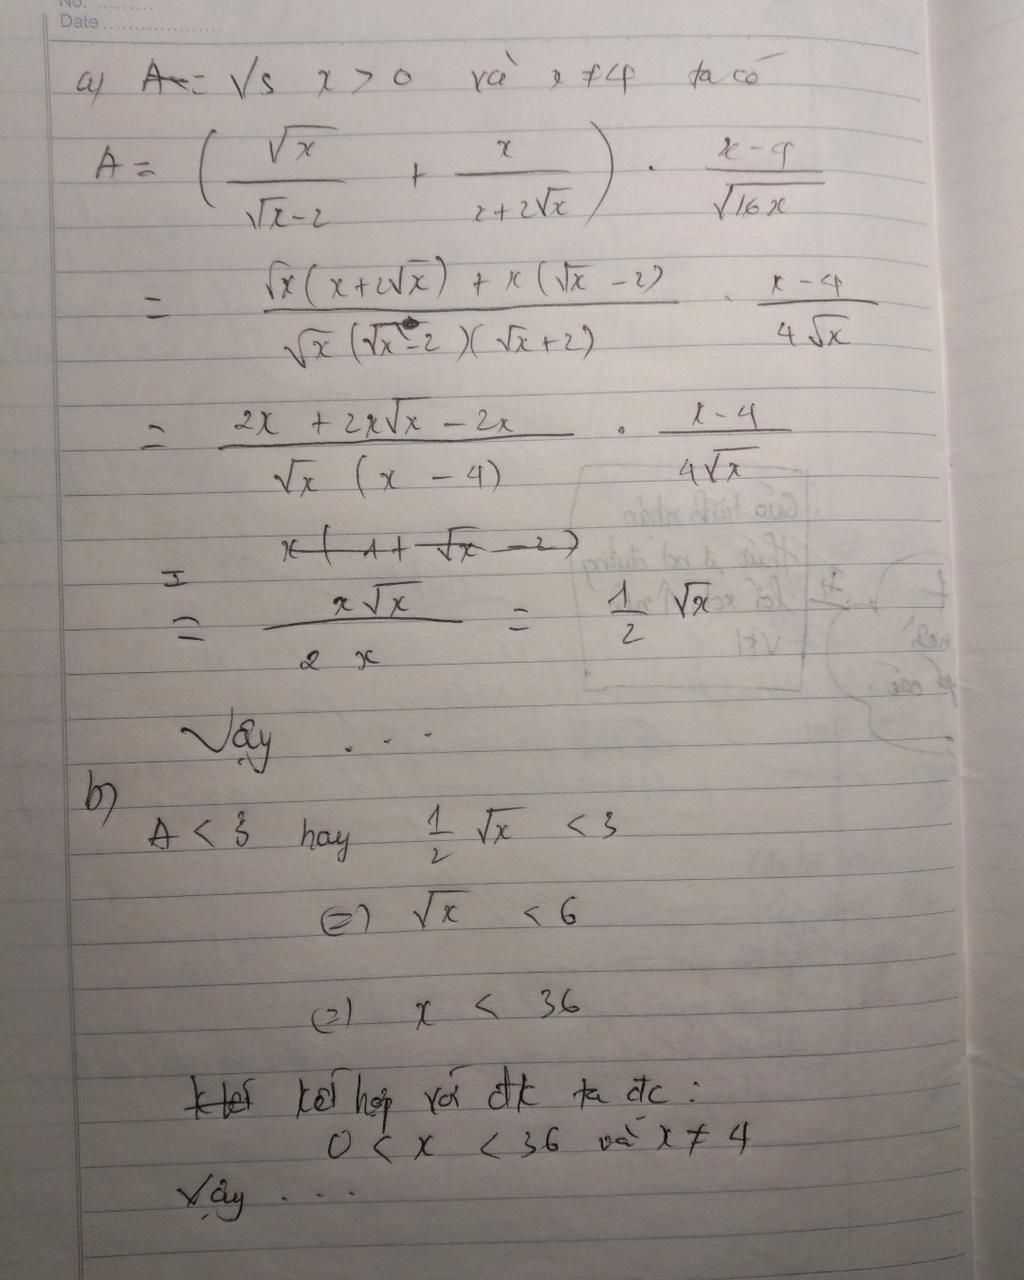 No. ..........
Date ....................
a) A = Vs x > 0 và x ≠ 4 ta có
A = ( √x / (√x - 2) + x / (2 + 2√x) ) . (x - 4) / √16x
= (√x(x + 2√x) + x(√x - 2)) / (√x(√x - 2)(√x + 2)) . (x - 4) / (4√x)
= (2x + 2x√x - 2x) / (√x (x - 4)) . (x - 4) / (4√x)
x(1 + √x - 2)
= x√x / 2x = 1/2 √x
Vậy ...
b)
A < 3 hay 1/2 √x < 3
(=) √x < 6
(=) x < 36
kết hợp với đk ta đc :
0 < x < 36 và x ≠ 4
Vậy ...